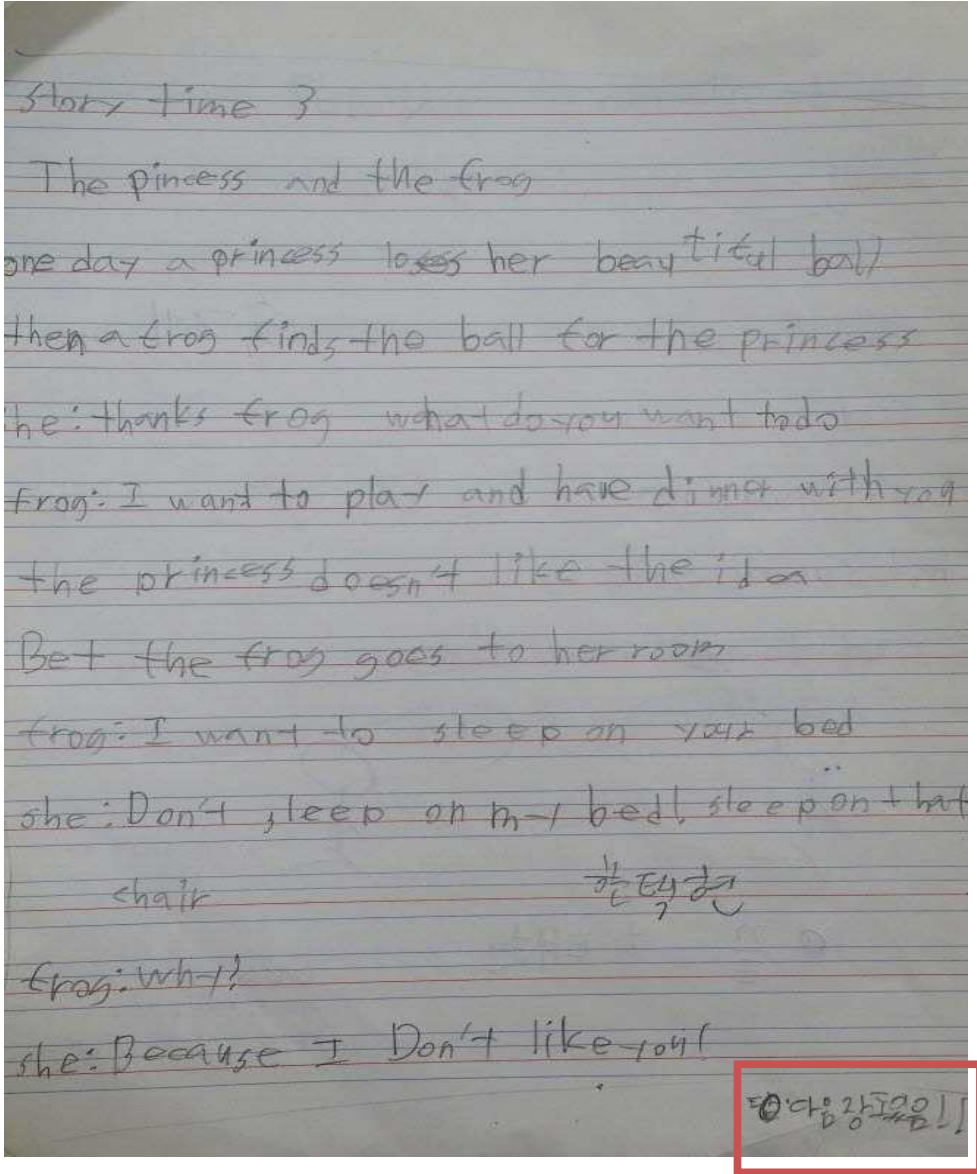 Story time 3
The pincess and the frog
one day a princess loses her beautiful ball
then a frog finds the ball for the princess
he: thanks frog what do you want to do
frog: I want to play and have dinner with you
the princess doesn't like the idea
But the frog goes to her room
frog: I want to sleep on your bed
she: Don't sleep on my bed! sleep on that
chair
frog: Why?
she: Because I Don't like you!
다음장도있음!!